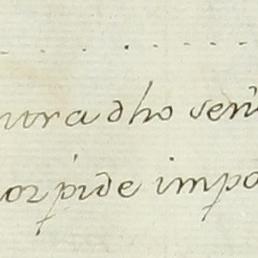 ora dho señ
or pide impo